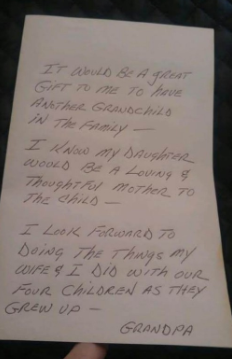 IT WOULD BE A GREAT
GIFT TO ME TO HAVE
ANOTHER GRANDCHILD
IN THE FAMILY —
I KNOW MY DAUGHTER
WOULD BE A LOVING &
THOUGHTFUL MOTHER TO
THE CHILD —
I LOOK FORWARD TO
DOING THE THINGS MY
WIFE & I DID WITH OUR
FOUR CHILDREN AS THEY
GREW UP —
GRANDPA